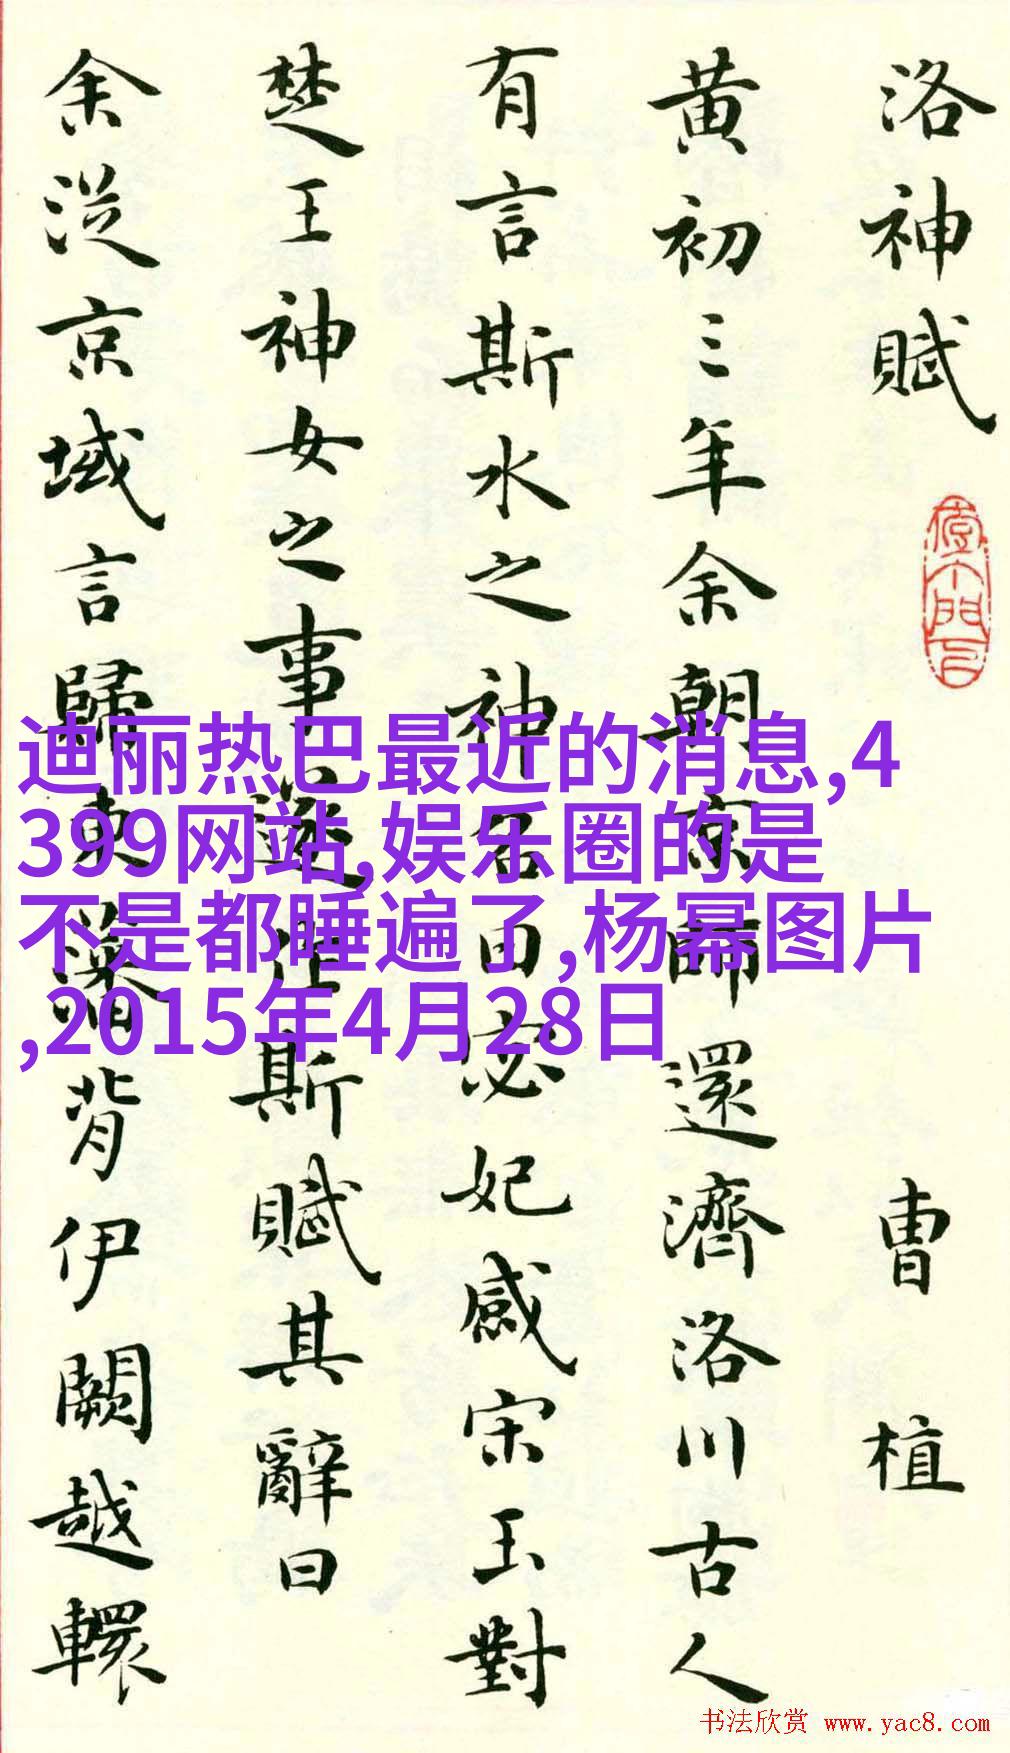 洛神賦
曹植
黄初三年余朝京師還濟洛川古人
有言斯水之神名曰宓妃感宋玉對
楚王神女之事遂作斯賦其辭曰
余従京域言歸東藩背伊闕越轘
迪丽热巴最近的消息,4
399网站,娱乐圈的是
不是都睡遍了,杨幂图片
,2015年4月28日
书法欣赏 www.yac8.com